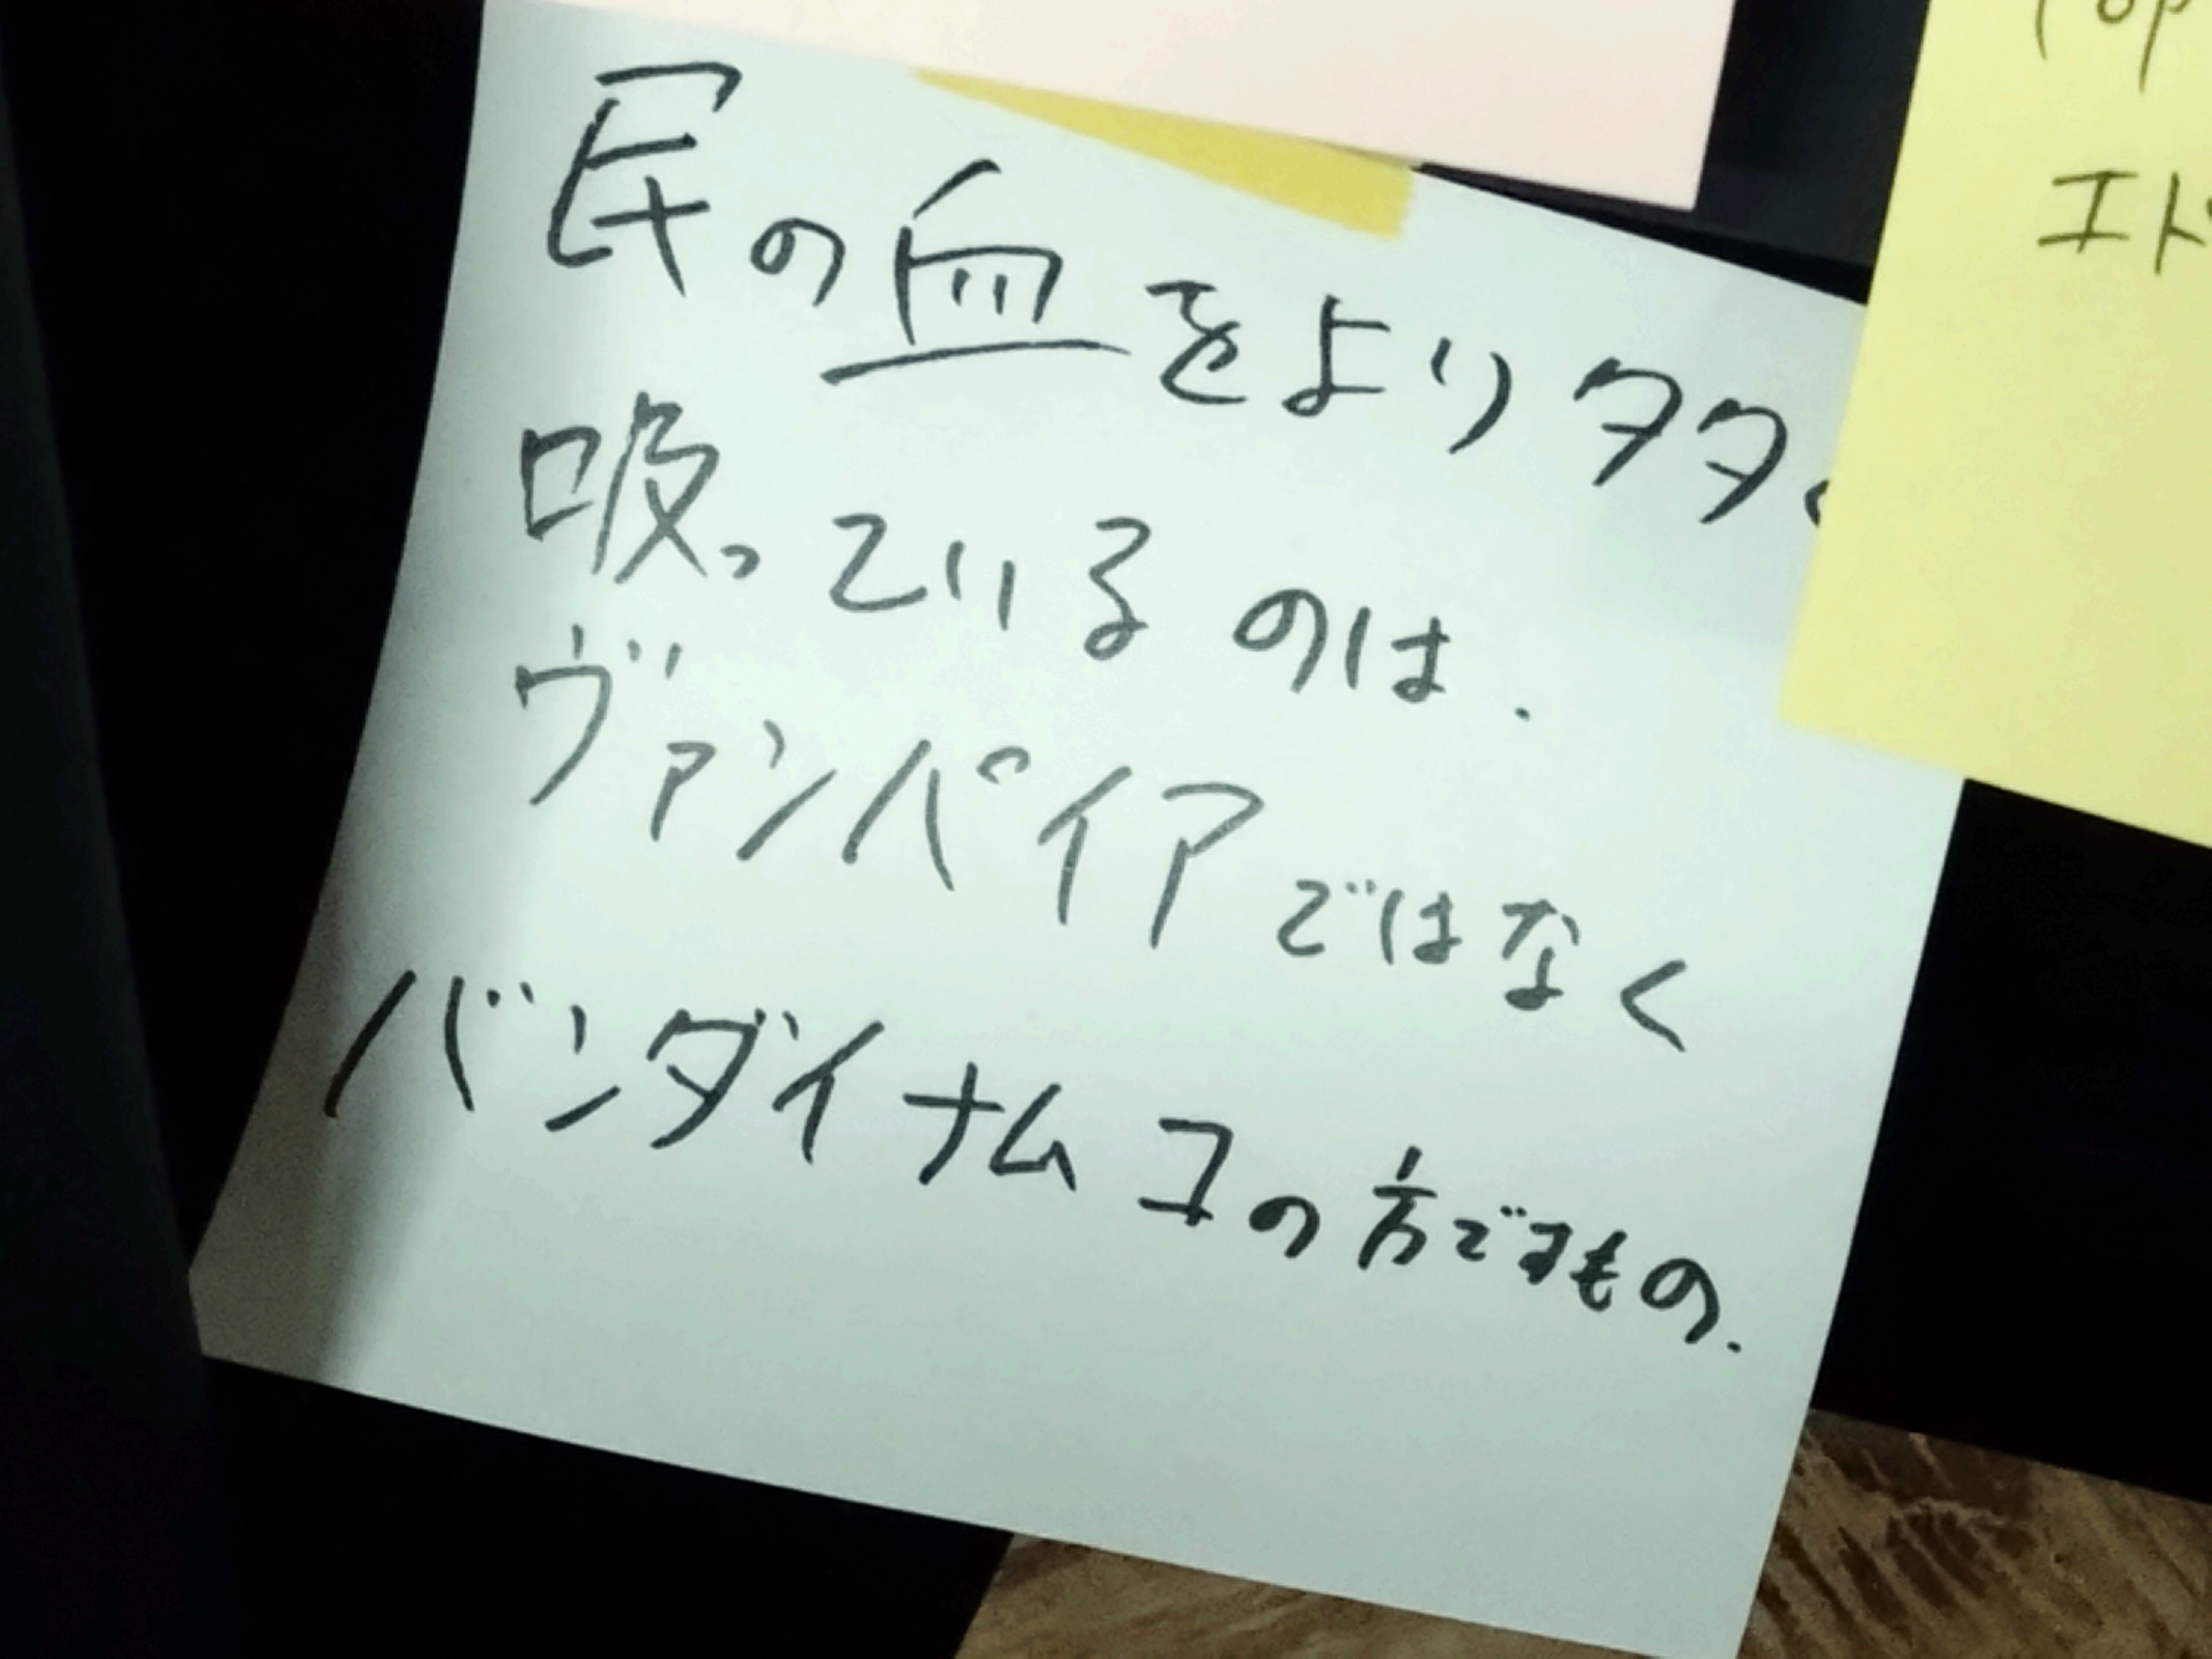 民の血をより多く
吸っているのは.
ヴァンパイアではなく
バンダイナムコの方ですもの.
エド